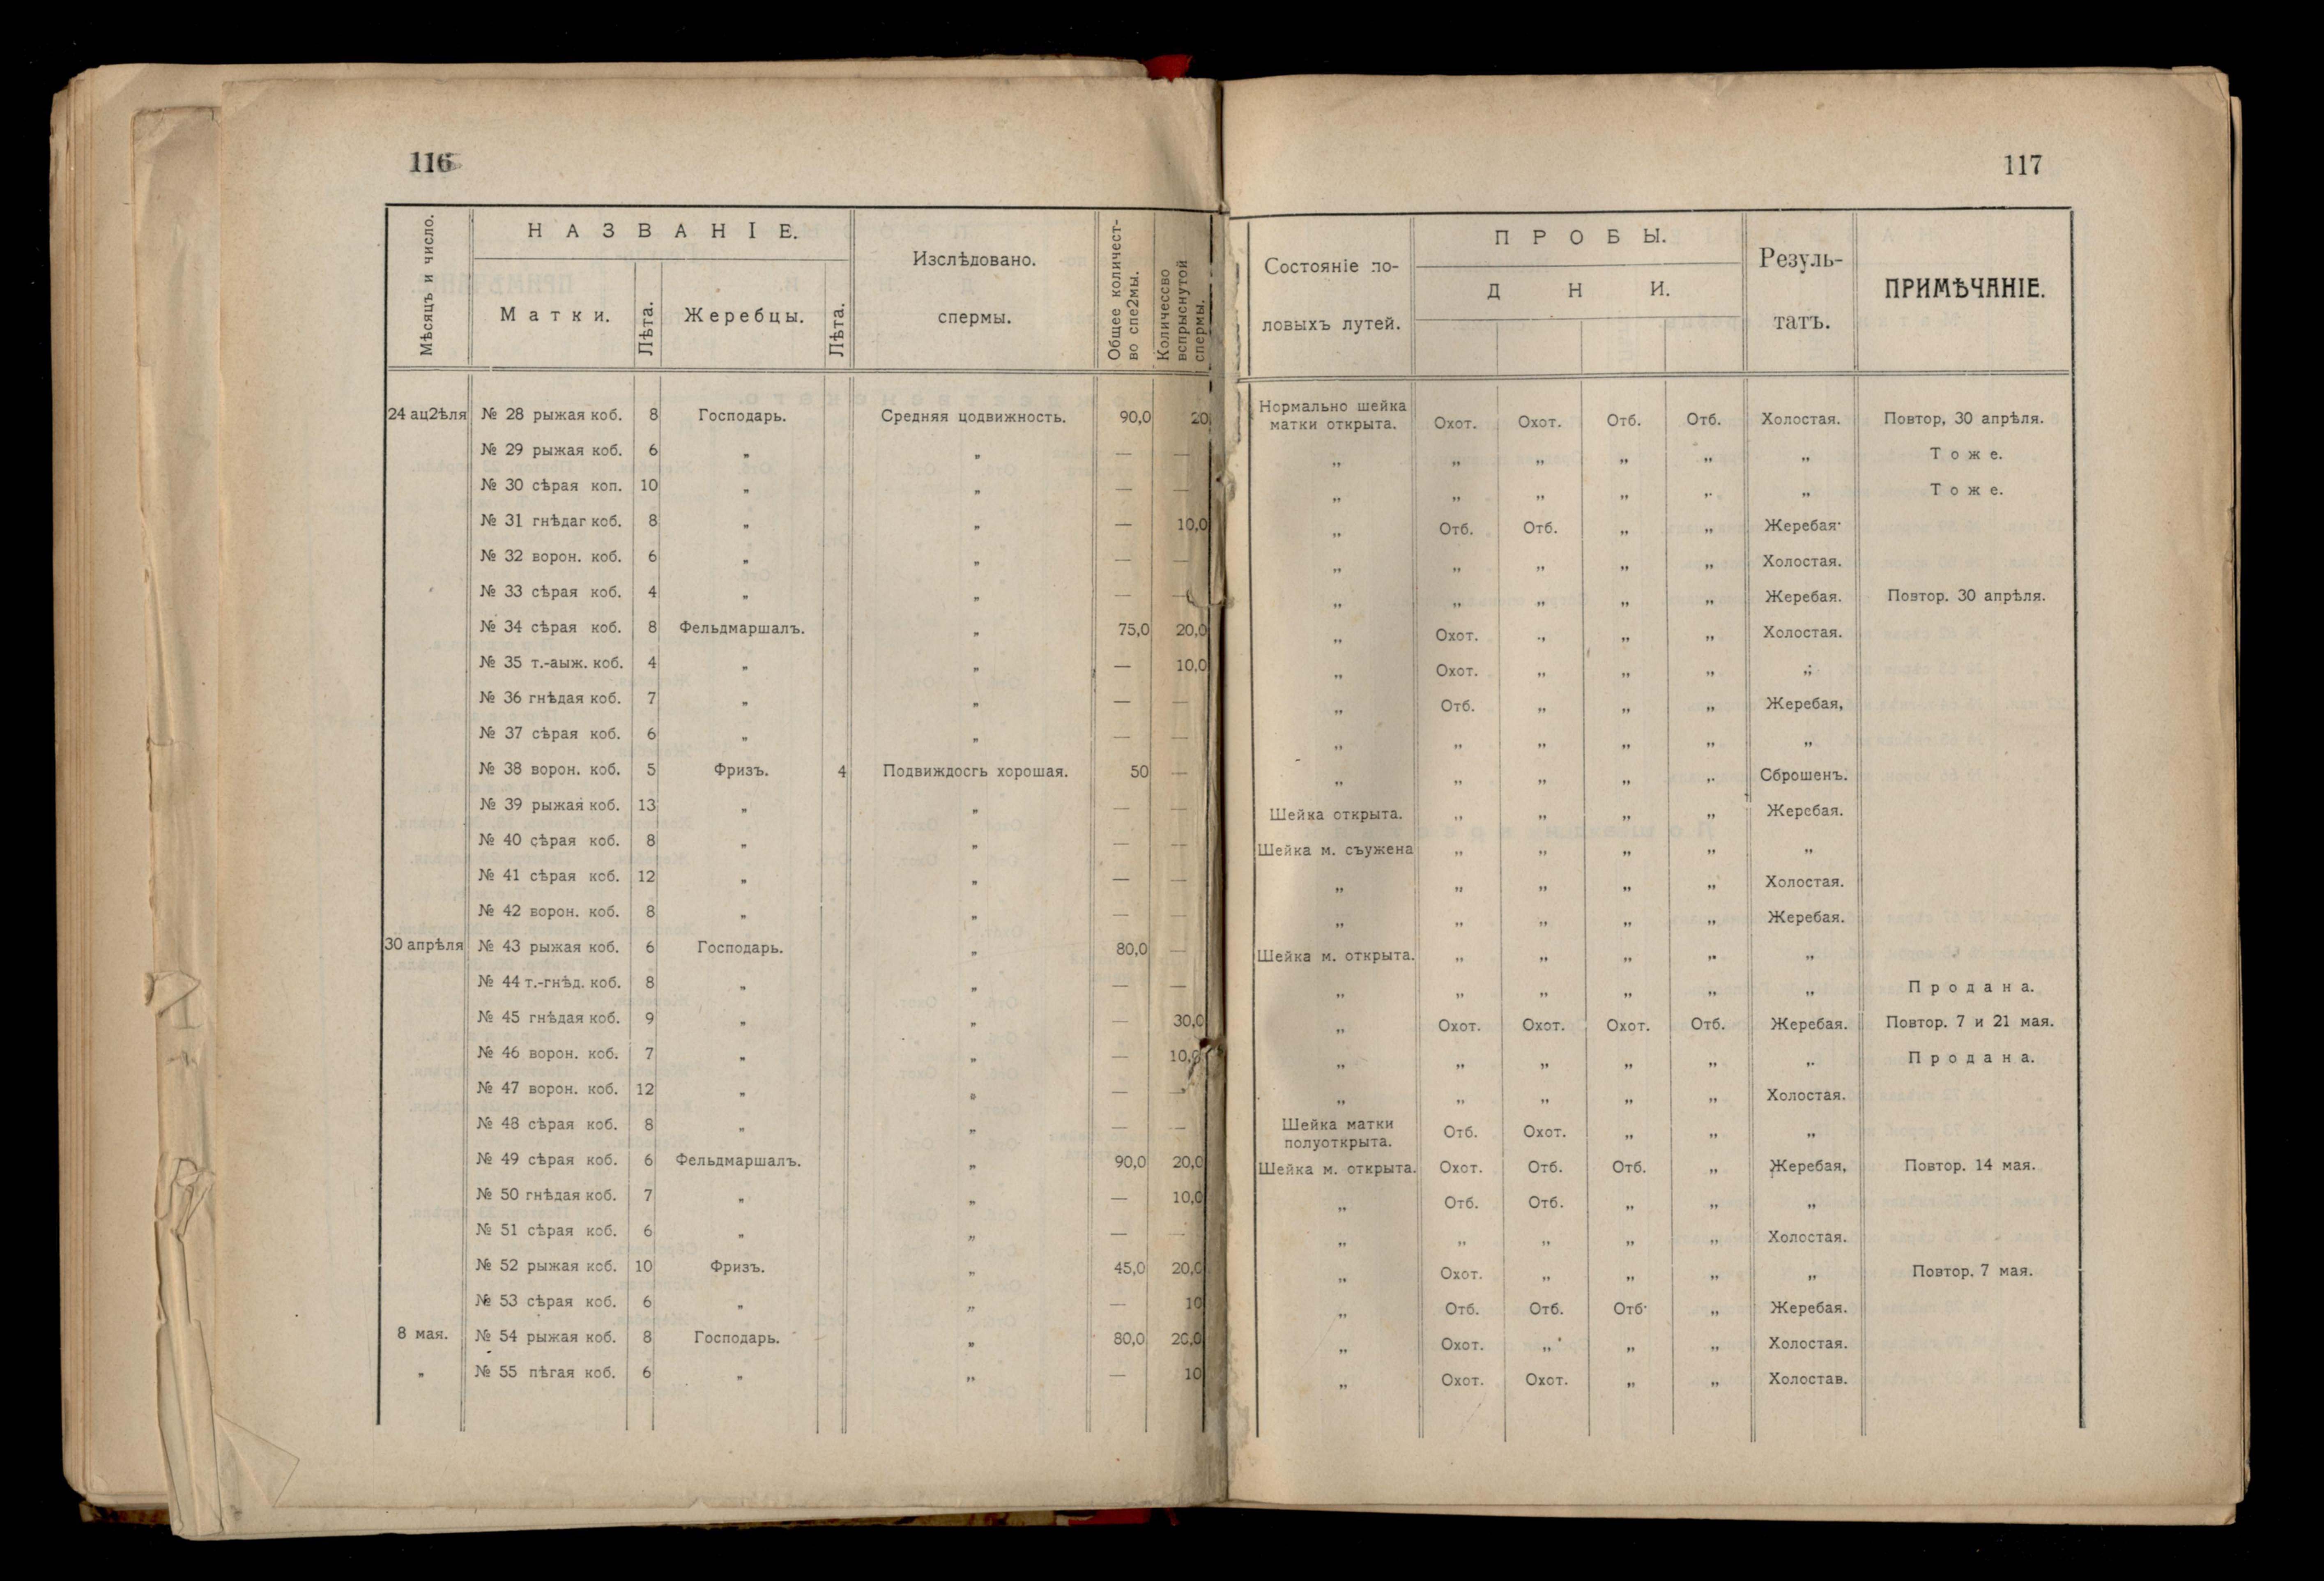 116
Мѣсяцъ и число.
Н А З В А Н І Е.
М а т к и.
Лѣта.
Жеребцы.
Лѣта.
Изслѣдовано.
спермы.
Общее количест-
во спе2мы.
Количессво
вспрыснутой
спермы.
24 ац2ѣля № 28 рыжая коб. 8 Господарь. Средняя цодвижность. 90,0 20
№ 29 рыжая коб. 6 „ „ — —
№ 30 сѣрая коп. 10 „ „ — —
№ 31 гнѣдаг коб. 8 „ „ — 10,0
№ 32 ворон. коб. 6 „ „ — —
№ 33 сѣрая коб. 4 „ „ — —
№ 34 сѣрая коб. 8 Фельдмаршалъ. „ 75,0 20,0
№ 35 т.-аыж. коб. 4 „ „ — 10,0
№ 36 гнѣдая коб. 7 „ „ — —
№ 37 сѣрая коб. 6 „ „ — —
№ 38 ворон. коб. 5 Фризъ. 4 Подвиждосгь хорошая. 50 —
№ 39 рыжая коб. 13 „ „ — —
№ 40 сѣрая коб. 8 „ „ — —
№ 41 сѣрая коб. 12 „ „ — —
№ 42 ворон. коб. 8 „ „ — —
30 апрѣля № 43 рыжая коб. 6 Господарь. „ 80,0 —
№ 44 т.-гнѣд. коб. 8 „ „ — —
№ 45 гнѣдая коб. 9 „ „ — 30,0
№ 46 ворон. коб. 7 „ „ — 10,0
№ 47 ворон. коб. 12 „ „ — —
№ 48 сѣрая коб. 8 „ „ — —
№ 49 сѣрая коб. 6 Фельдмаршалъ. „ 90,0 20,0
№ 50 гнѣдая коб. 7 „ „ — 10,0
№ 51 сѣрая коб. 6 „ „ — —
№ 52 рыжая коб. 10 Фризъ. „ 45,0 20,0
№ 53 сѣрая коб. 6 „ „ — 10
8 мая. № 54 рыжая коб. 8 Господарь. „ 80,0 20,0
„ № 55 пѣгая коб. 6 „ „ — 10
117
Состояніе по-
ловыхъ лутей.
П Р О Б Ы.
Д Н И.
Резуль-
татъ.
ПРИМѢЧАНІЕ.
Нормально шейка
матки открыта. Охот. Охот. Отб. Отб. Холостая. Повтор, 30 апрѣля.
„ „ „ „ „ „ Т о ж е.
„ „ „ „ „ „ Т о ж е.
„ Отб. Отб. „ „ Жеребая·
„ „ „ „ „ Холостая.
„ „ „ „ „ Жеребая. Повтор. 30 апрѣля.
„ Охот. „ „ „ Холостая.
„ Охот. „ „ „ „
„ Отб. „ „ „ Жеребая,
„ „ „ „ „ „
„ „ „ „ „ Сброшенъ.
Шейка открыта. „ „ „ „ Жеребая.
Шейка м. съужена „ „ „ „ „
„ „ „ „ „ Холостая.
„ „ „ „ „ Жеребая.
Шейка м. открыта. „ „ „ „ „
„ „ „ „ „ „ П р о д а н а.
„ Охот. Охот. Охот. Отб. Жеребая. Повтор. 7 и 21 мая.
„ „ „ „ „ „ П р о д а н а.
„ „ „ „ „ Холостая.
Шейка матки
полуоткрыта. Отб. Охот. „ „ „
Шейка м. открыта. Охот. Отб. Отб. „ Жеребая, Повтор. 14 мая.
„ Отб. Отб. „ „ „
„ „ „ „ „ Холостая.
„ Охот. „ „ „ „ Повтор. 7 мая.
„ Отб. Отб. Отб· „ Жеребая.
„ Охот. „ „ „ Холостая.
„ Охот. Охот. „ „ Холостав.